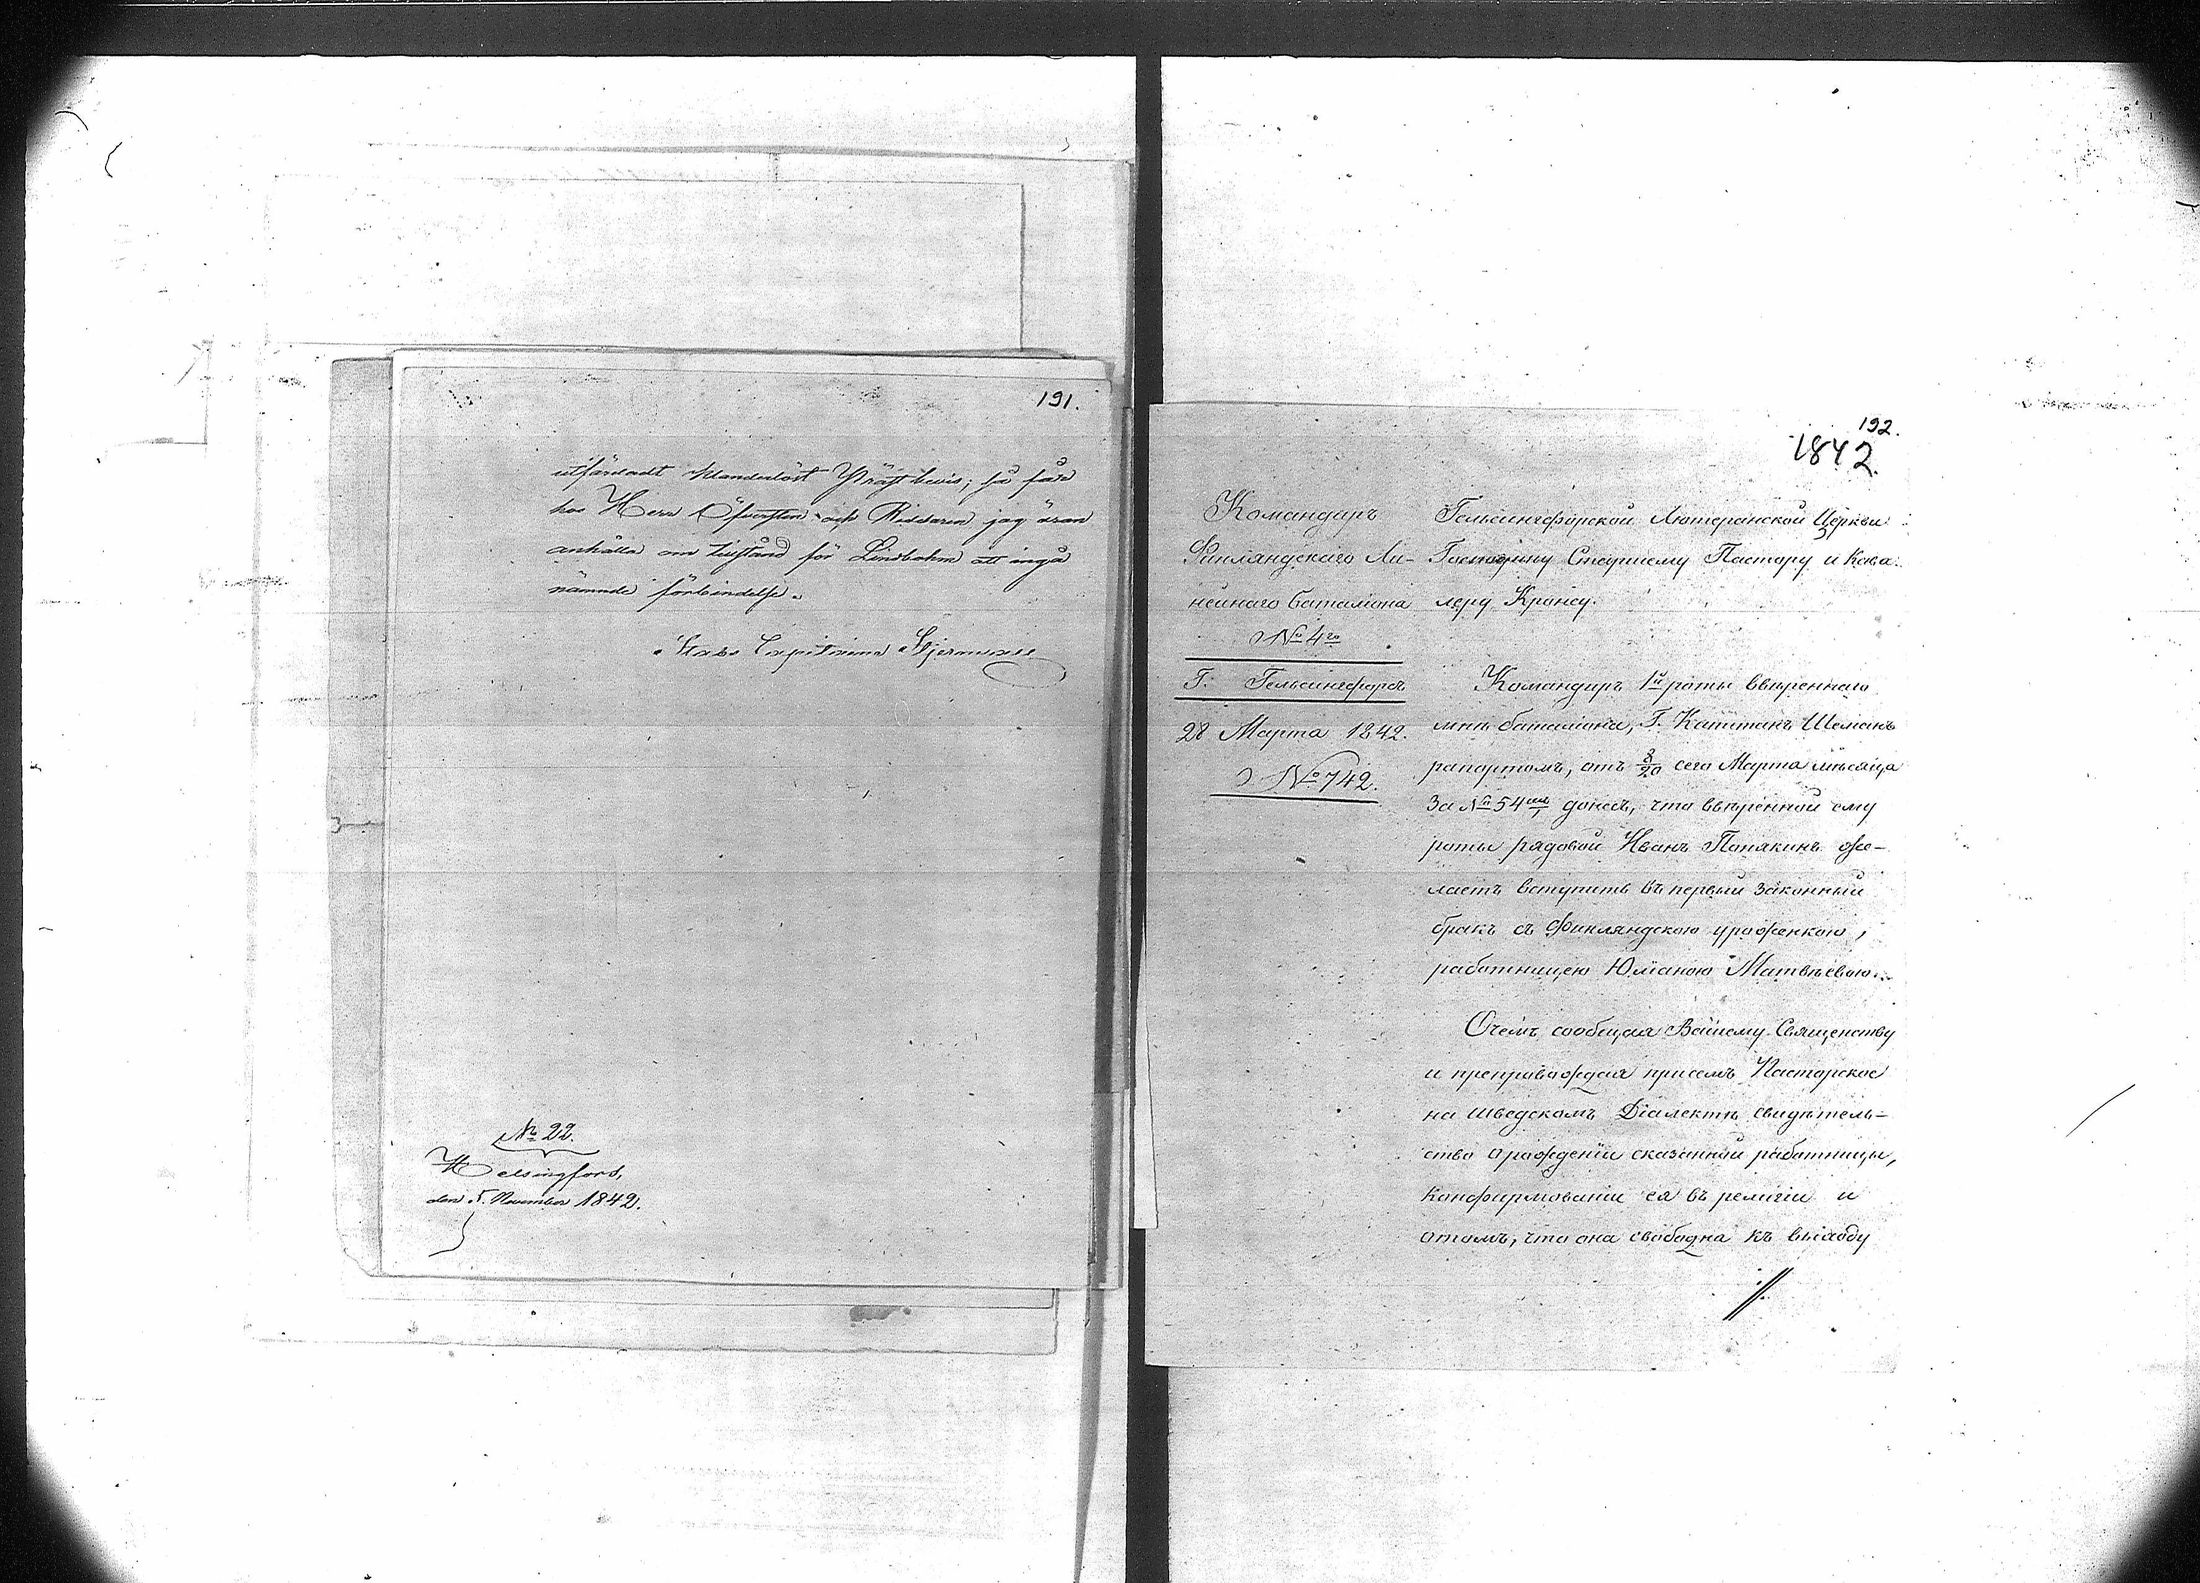 191.
utfärdadt Prästbevis; så får
hos Herr Öfversten och Riddaren jag äran
anhålla om tilstånd för Lindbohm att ingå
nämnde förbindelse.
Stabs Capitaine
№ 22.
Helsingfors,
den 5. November 1842.
192.
1842.
Командиръ
Финляндскаго Ли-
нейнаго баталіона
№ 4го
Г. Гельсингфорсъ
28 Марта 1842.
№ 742.
Гельсингфорской Лютеранской Церкви
Господину Старшему Пастору и Кава-
леру Кронсу.
Командиръ 1й роты ввѣреннаго
мнѣ баталіона, Г. Капитанъ Шеманъ
рапортомъ, отъ 8/20 сего Марта мѣсяца
за № 54мъ, донесъ, что ввѣренной ему
роты рядовой Иванъ Понякинъ же-
лаетъ вступить въ первый законный
бракъ съ Финляндскою уроженкою,
работницею Юліаною Матвѣевою.
О чемъ сообщая Вашему Священству
и препровождая присемъ Пасторское
на шведскомъ Діалектѣ свидѣтель-
ство о рожденіи сказанной работницы,
конфирмованіи ея въ религіи и
о томъ, что она свободна къ выходу